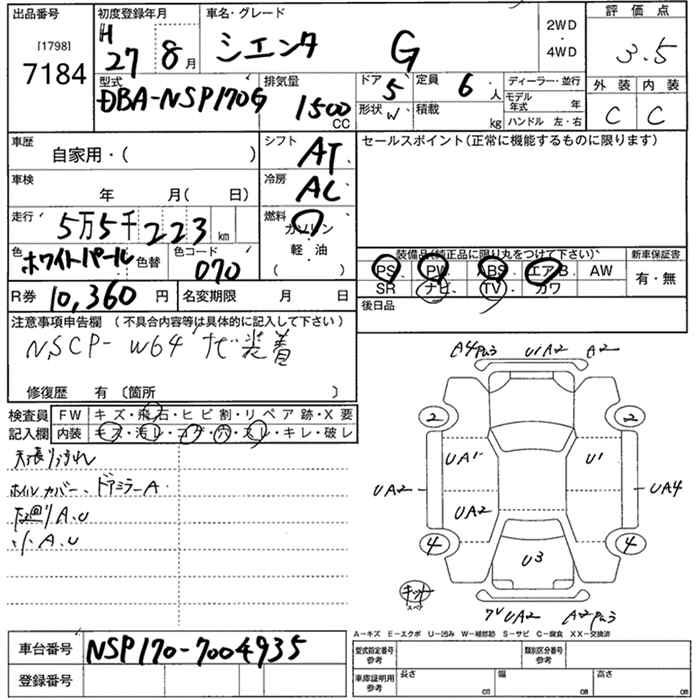 出品番号
[1798]
7184
初度登録年月
H 27 8月
車名・グレード
シエンタ G
2WD
・
4WD
評価点
3.5
型式
DBA-NSP170G
排気量
1500 CC
ドア 5
形状 W
定員 6 人
積載 kg
ディーラー・並行
モデル年式 年
ハンドル 左・右
外装 内装
C C
車歴
自家用・( )
シフト AT
セールスポイント(正常に機能するものに限ります)
車検
年 月( 日)
冷房 AC
走行 5万5千223 km
燃料
ガソリン
軽・油
( )
色 ホワイトパール 色替
色コード 070
装備品(純正品に限り丸をつけて下さい)
新車保証書
PS. PW. ABS. エアB. AW
有・無
SR ナビ. TV. カワ
R券 10,360 円
名変期限 月 日
後日品
注意事項申告欄 (不具合内容等は具体的に記入して下さい)
NSCP-W64 ナビ装着
修復歴 有 〔箇所 〕
検査員記入欄
FW キズ・飛石・ヒビ割・リペア跡・X要
内装 キズ・汚レ・コゲ・穴・スレ・キレ・破レ
天張り汚れ
ホイルカバー、ドアミラーA
下廻りA.U
小A.U
A4Pa3 U1A2 A2
2 2
UA1 U1
UA2 UA4
UA2
4 4
U3
キット
スペア
UA2 A2Pa3
A-キズ E-エクボ U-凹み W-補修跡 S-サビ C-腐食 XX-交換済
車台番号 NSP170-7004935
登録番号
型式指定番号
参考
類別区分番号
参考
車庫証明用
参考
長さ cm
幅 cm
高さ cm